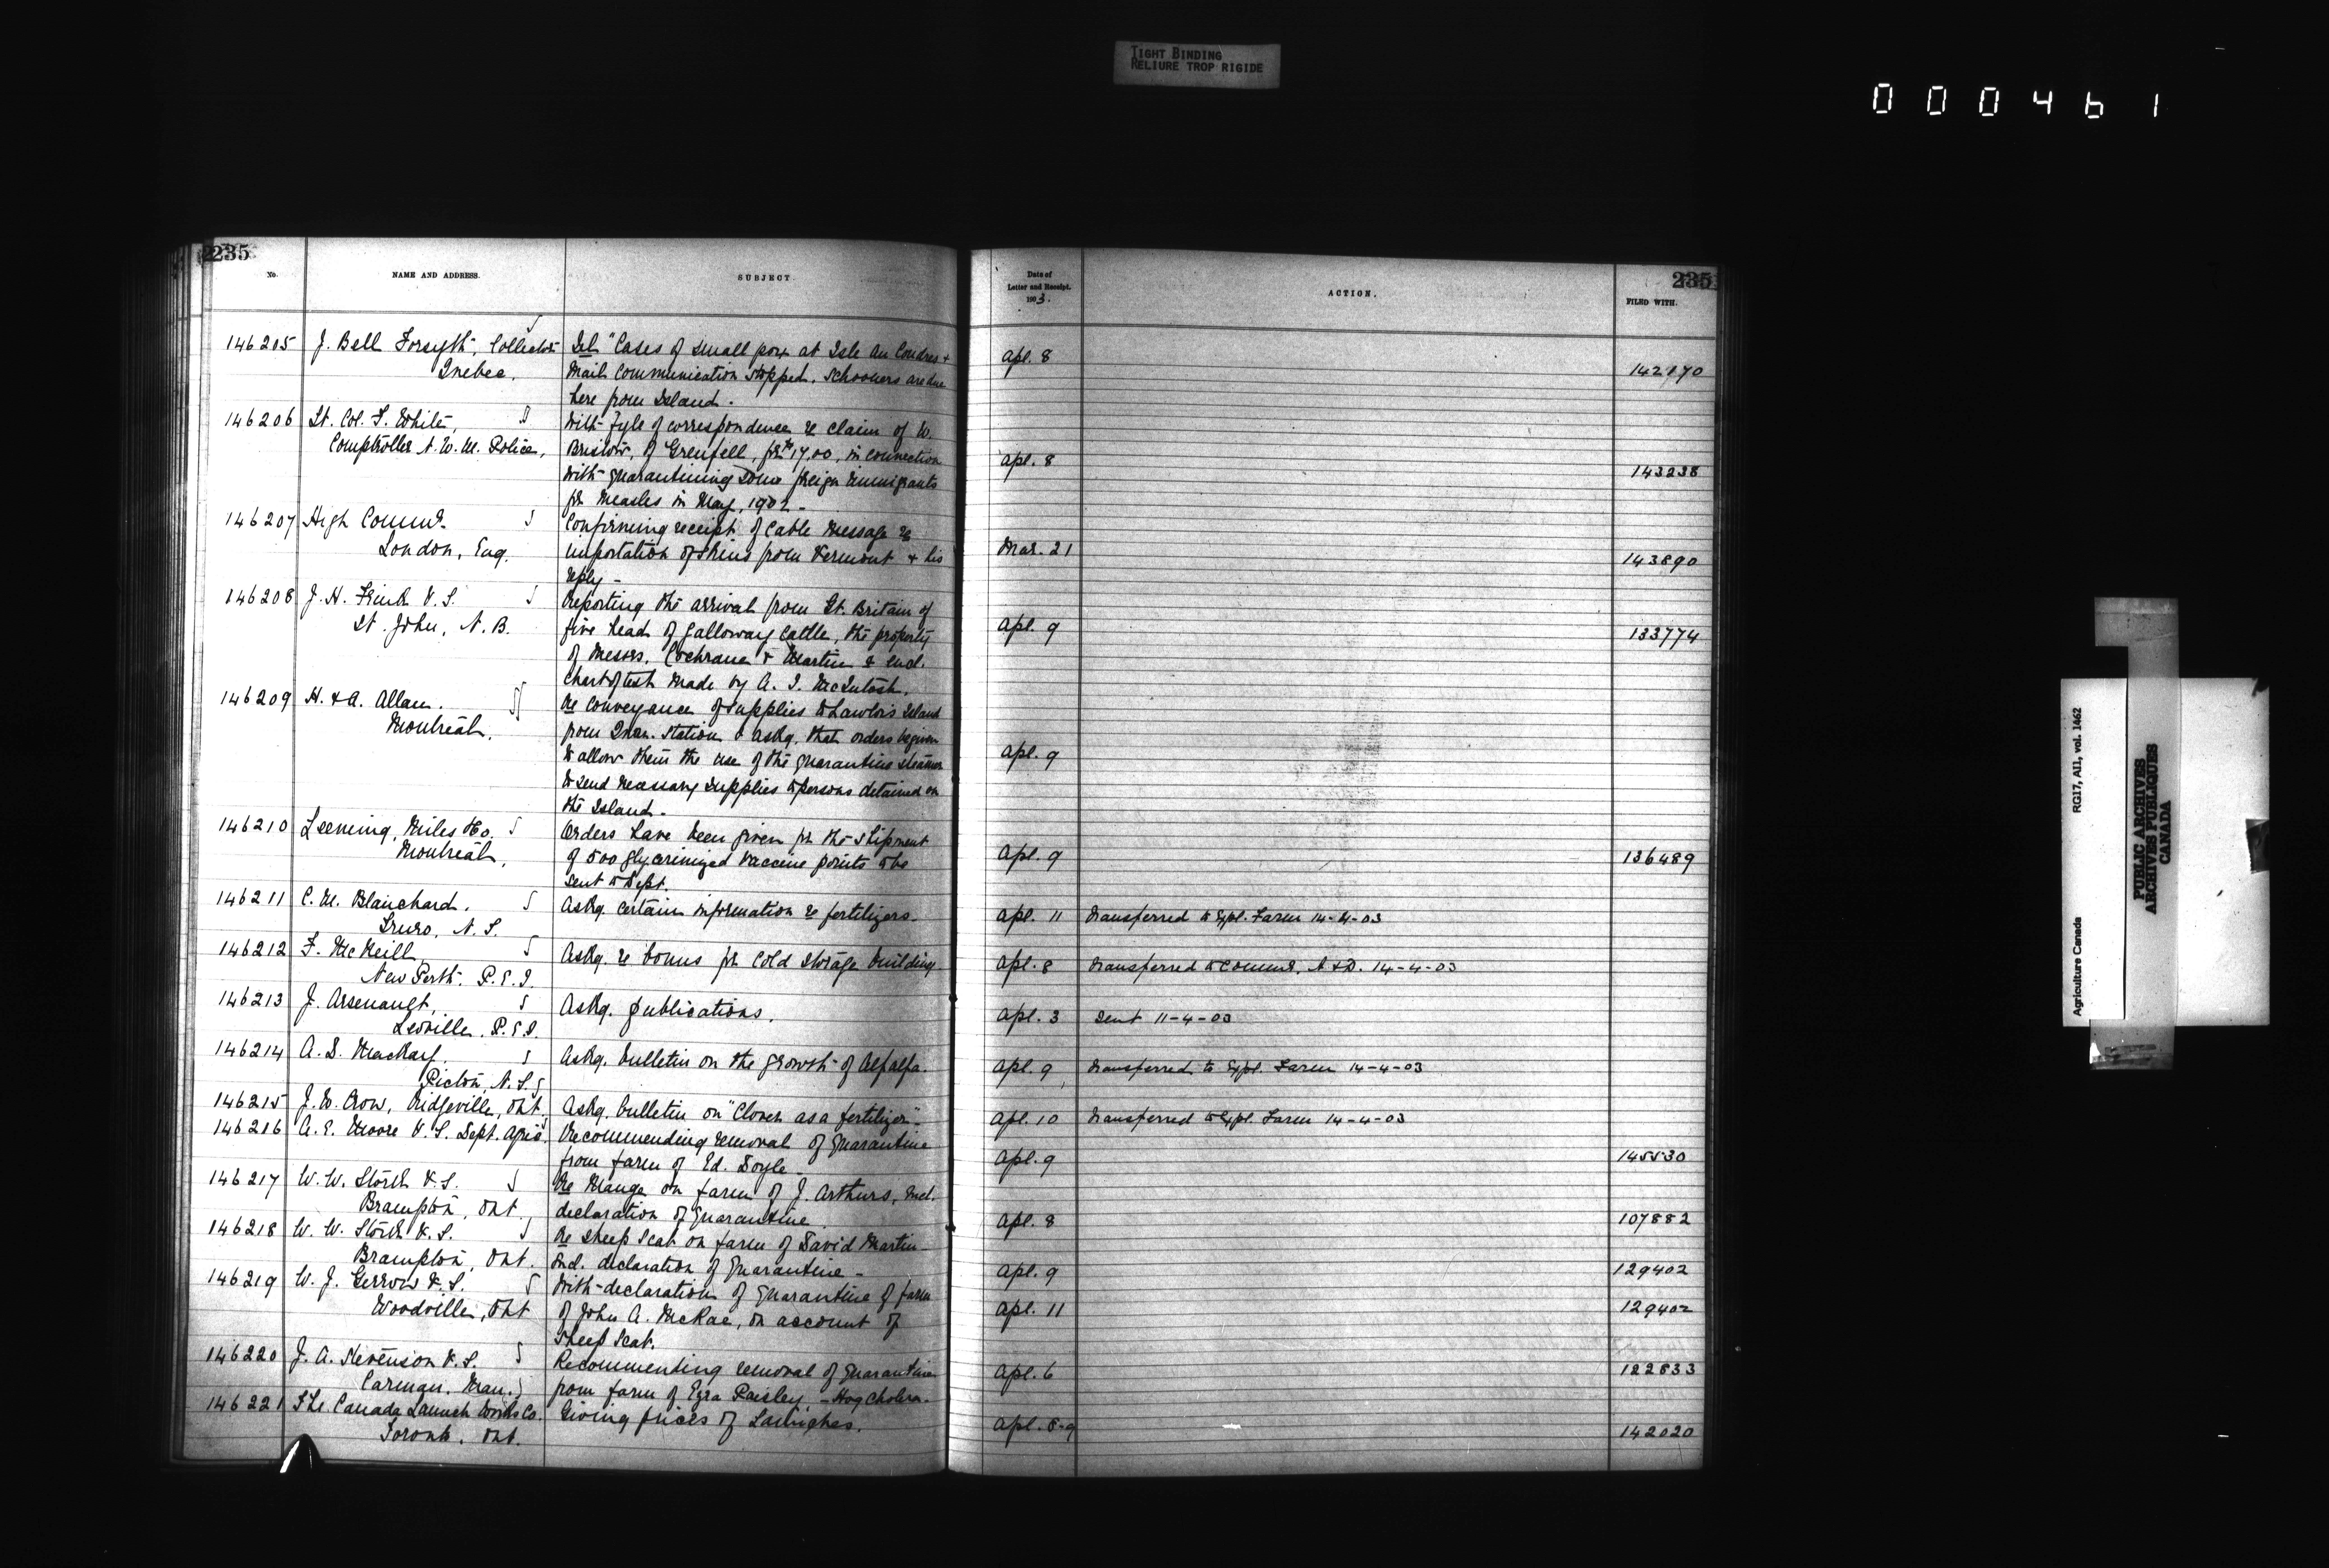 TIGHT BINDING
RELIURE TROP RIGIDE
000461
235
No. NAME AND ADDRESS. SUBJECT
146205 J. Bell Forsyth, Collector Tel "Cases of small pox at Isle au Coudres +
Quebec. Mail Communication stopped. Schooners are due
here from Island.
146206 Lt. Col. F. White, With fyle of correspondence re claim of W.
Comptroller N.W.M. Police, Bristow, of Grenfell, for $17.00, in connection
with quarantining some foreign immigrants
for measles in May, 1902 -
146207 High Commr. Confirming receipt of Cable Message re
London, Eng. importation of skins from Vermont + his
reply -
146208 J. H. Frink V.S. Reporting the arrival from Gt. Britain of
St. John, N.B. five head of Galloway Cattle, the property
of Messrs. Cochrane + Martin & encl.
chart of test made by A. I. McIntosh.
146209 H. & A. Allan. Re conveyance of supplies to Lawlor's Island
Montreal. from Quar. Station & askg. that orders be given
to allow them the use of the quarantine steamer
to send necessary supplies to persons detained on
the Island.
146210 Leeming, Miles & Co. Orders have been given for the shipment
Montreal, of 500 glycerinized vaccine points to be
sent to Dept.
146211 C. M. Blanchard. Askg. certain information re fertilizers.
Truro, N.S.
146212 F. McNeill Askg. re bonus for cold storage building.
New Perth. P.E.I.
146213 J. Arsenault, Askg. publications.
Leoville. P.E.I.
146214 A. D. MacKay. Askg. bulletin on the growth of Alfalfa.
Pictou, N.S.
146215 J. W. Crow, Ridgeville, Ont. Askg. bulletin on "Clover as a fertilizer"
146216 A. E. Moore V.S. Dept. Agric. Recommending removal of quarantine
from farm of Ed. Doyle -
146217 W. W. Stork V.S. Re Mange on farm of J. Arthurs, encl.
Brampton, Ont. declaration of quarantine
146218 W. W. Stork V.S. Re sheep scab on farm of David Martin -
Brampton, Ont. encl. declaration of quarantine -
146219 W. J. Gerrow V.S. With declaration of quarantine of farm
Woodville, Ont of John A. McRae, on account of
sheep scab.
146220 J. A. Stevenson V.S. Recommending removal of quarantine
Carman. Man. from farm of Ezra Paisley, - Hog Cholera -
146221 The Canada Launch Works Co. Giving prices of Launches.
Toronto, Ont.
235
Date of
Letter and Receipt.
1903. ACTION. FILED WITH.
Apl. 8 142170
Apl. 8 143238
Mar. 21 143890
Apl. 9 133774
Apl. 9
Apl. 9 136489
Apl. 11 Transferred to Expl. Farm 14-4-03
Apl. 8 Transferred to Commr. A & D. 14-4-03
Apl. 3 Sent 11-4-03
Apl. 9 Transferred to Expl. Farm 14-4-03
Apl. 10 Transferred to Expl. Farm 14-4-03
Apl. 9 145530
Apl. 8 107882
Apl. 9 129402
Apl. 11 129402
Apl. 6 122833
Apl. 8-9 142020
Agriculture Canada RG17, AII, vol. 1462
PUBLIC ARCHIVES
ARCHIVES PUBLIQUES
CANADA